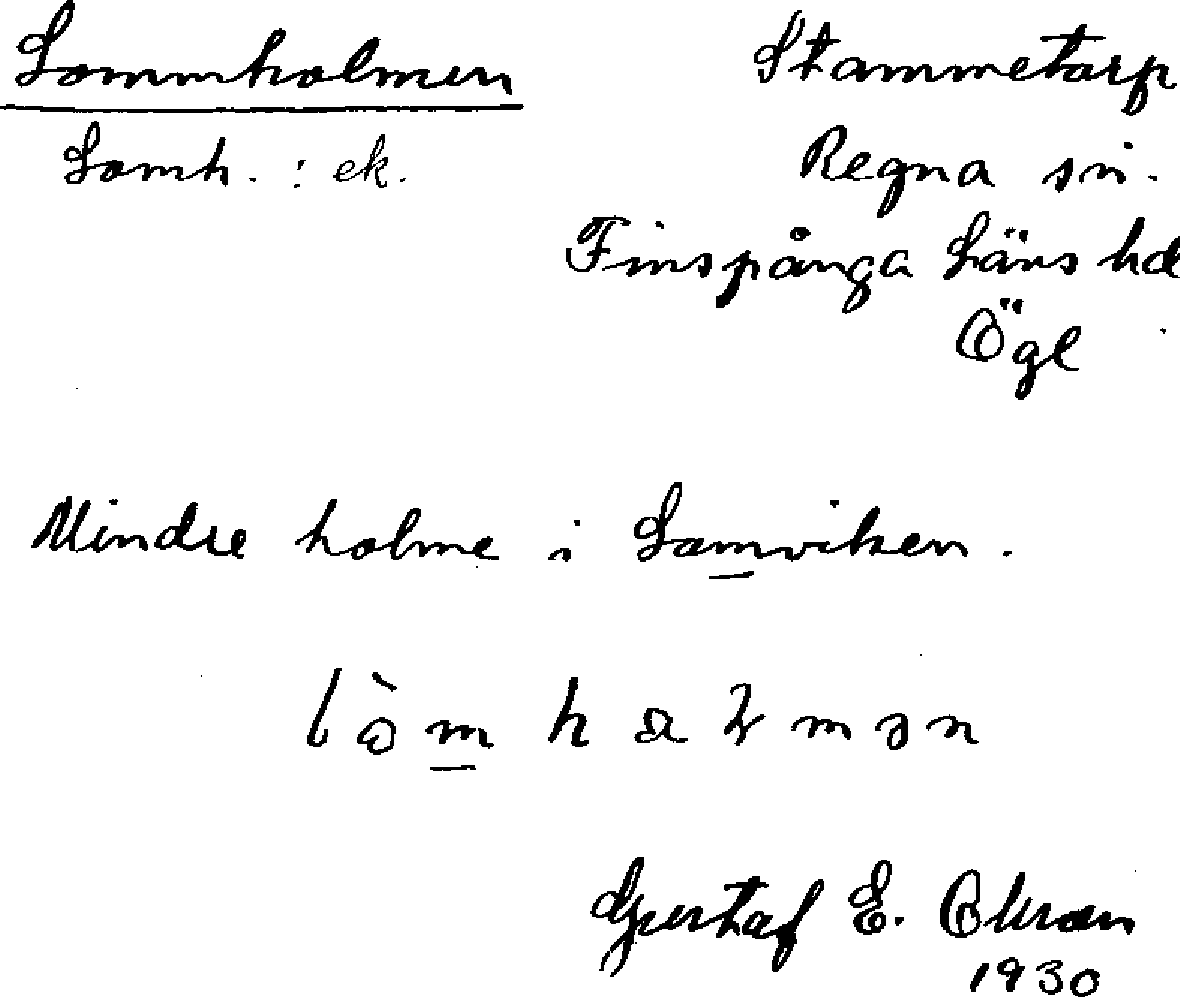 Lommholmen
Lomh. : ek.
Stammetorp
Regna sn.
Finspånga läns hd
Ögl
Mindre holme i Lomviken.
Gustaf E.
1930